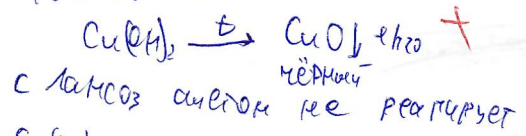 Cu(OH)₂ →t CuO↓ + H2O +
чёрный
с лансоз ацетон не реагирует